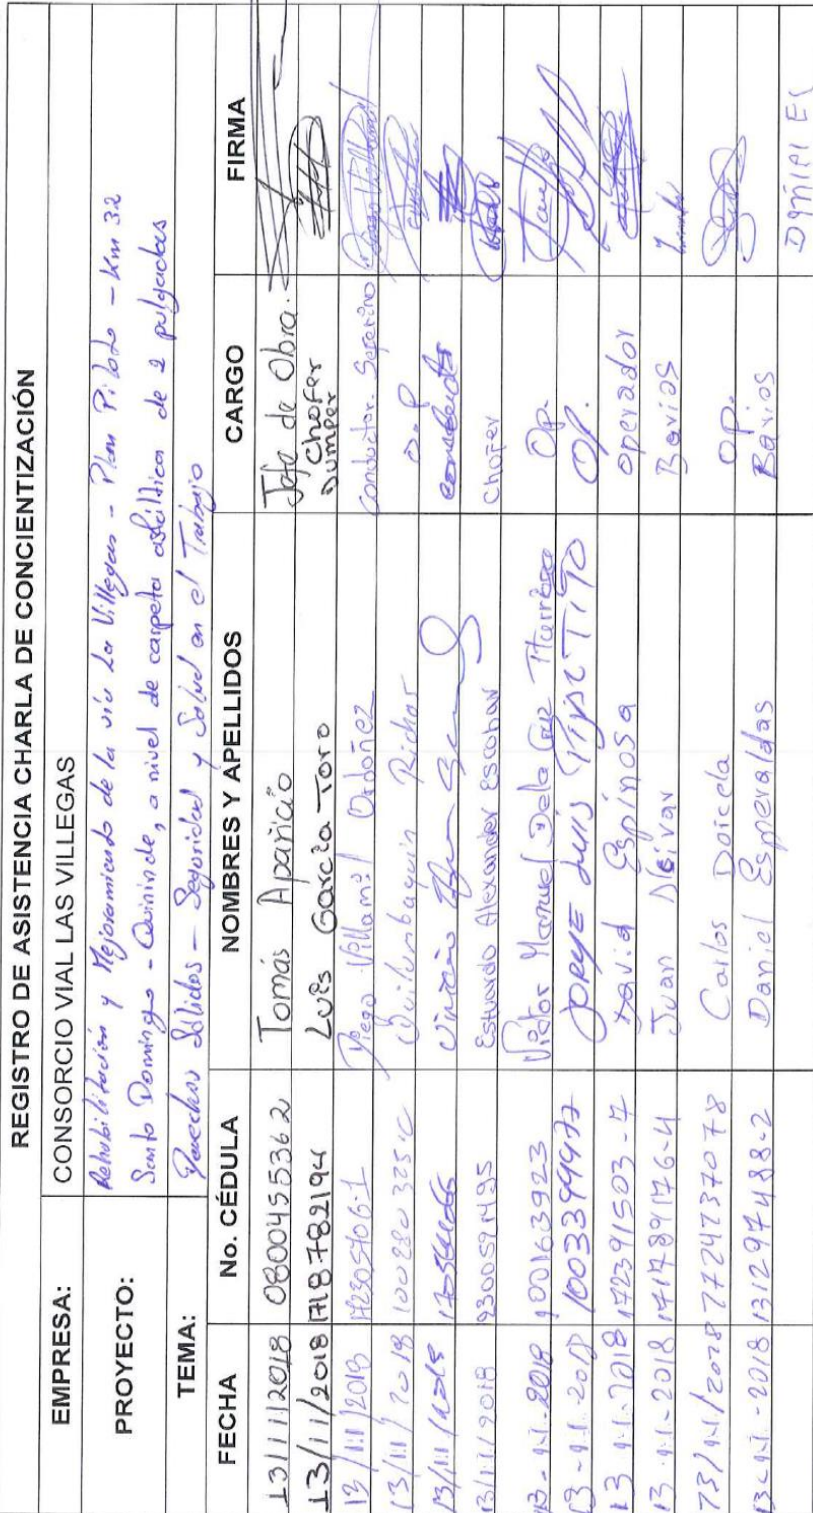 REGISTRO DE ASISTENCIA CHARLA DE CONCIENTIZACIÓN
EMPRESA: CONSORCIO VIAL LAS VILLEGAS
PROYECTO: Rehabilitación y Mejoramiento de la vía Las Villegas - Plan Piloto - Km 32
Santo Domingo - Quininde, a nivel de carpeta asfáltica de 2 pulgadas
TEMA: Desechos Sólidos - Seguridad y Salud en el Trabajo
FECHA No. CÉDULA NOMBRES Y APELLIDOS CARGO FIRMA
13/11/2018 0800455362 Tomás Aparicio Jefe de Obra.
13/11/2018 1718782194 Luis García Toro Chofer Dumper
13/11/2018 Diego Villamil Ordoñez Conductor
13/11/2018 Quilumbaquin Richar O.P
13/11/2018
13/11/2018 Estuardo Alexander Escobar Chofer
13-11-2018 100163923 Victor Manuel Dela Cruz Op.
13-11-2018 1003394977 Jorge Luis OP.
13-11-2018 172391503-7 David Espinosa operador
13-11-2018 171789176-4 Juan Barios
Carlos Doicela OP.
13-11-2018 131297488-2 Daniel Esmeraldas Barios
Daniel Es